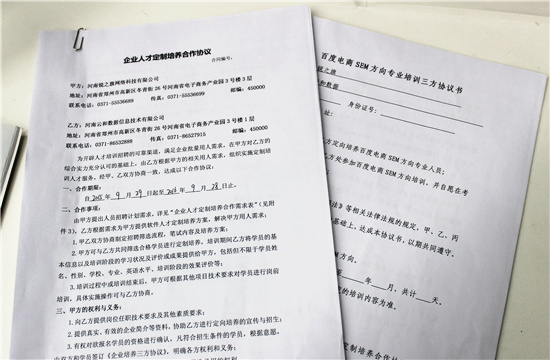 企业人才定制培养合作协议
合同编号:
甲方：河南锐之旗网络科技有限公司
地址：河南省郑州市高新区冬青街 26 号河南省电子商务产业园 3 号楼 3 层
联系电话：0371-55536689 传真：0371-55536699 邮编：450000
乙方：河南云和数据信息技术有限公司
地址：河南省郑州市高新区冬青街 26 号河南省电子商务产业园 3 号楼 1 层
联系电话：0371-86532889 传真：0371-86527915 邮编：450000
为开辟人才培训招聘的可靠渠道，满足企业批量用人需求，在甲方对乙方的
综合实力充分认可的基础上，由乙方根据甲方的相关用人需求，组织实施定制培
训人才服务，经甲、乙双方协商一致，达成以下合作协议：
一、合作期限：
自 2015 年 9 月 29 日起至 2016 年 9 月 28 日止。
二、合作事项：
由甲方提出人员招聘计划需求，详见“企业人才定制培养合作需求表”（见附
件 3）。乙方根据需求为甲方提供软件人才定制培养方案，解决甲方用人需求：
1.甲乙双方协商制定招聘筛选流程，笔试内容及培养方案；
2.甲方可与乙方共同筛选合格学员进行定制培养。培训期间乙方将学员的基
本信息以及培训阶段的学习状况及评价或成果提供给甲方，包括但不限于学员姓
名、性别、学校、专业、英语水平、培训阶段的效果评价等；
3.培训过程中或培训结束后，甲方可根据其他项目技术要求对学员进行岗前
培训，具体实施操作可与乙方协商。
三、甲方的权利与义务：
1.向乙方提供岗位任职技术要求及其他素质要求；
2.提供真实、有效的企业简介等资料，协助乙方进行定向培养的宣传与招生；
3.有权对欲报名学员的资格进行确认，凡符合招生条件的学员，根据意愿，
由双方和学员签订《企业培养三方协议》，明确各方权利和义务；
百度电商 SEM 方向专业培训三方协议书
锐之旗
和数据
身份证号：
址：
方定向培养百度电商 SEM 方向专业人员；
方处参加百度电商 SEM 方向培训，并自愿在考
法》等相关法律法规的规定，甲、乙、丙
基础上，达成本协议书，以期共同遵守。
SEM 方向。
年 月，共计 天。
的培训内容为准。
定制培养合作